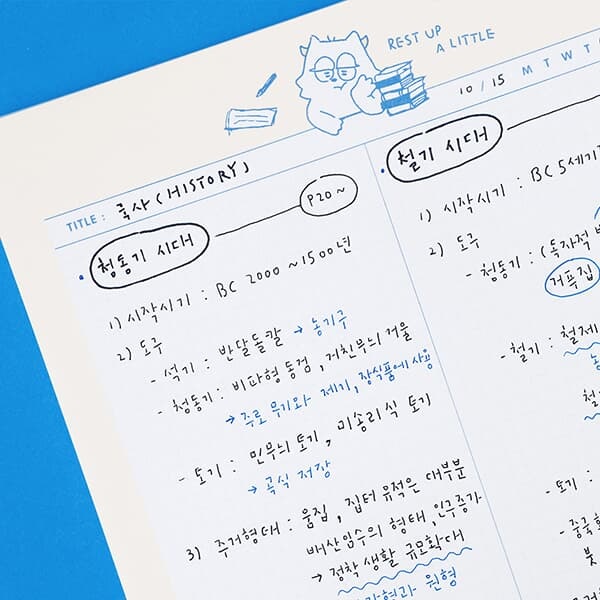 REST UP
A LITTLE
10 / 15 M T W T
TITLE : 국사 (HISTORY)
청동기 시대
P20~
1) 시작시기 : BC 2000 ~ 1500년
2) 도구
- 석기 : 반달돌칼 → 농기구
- 청동기 : 비파형동검, 거친무늬 거울
→ 주로 무기와 제기, 장식품에 사용
- 토기 : 민무늬 토기, 미송리식 토기
→ 곡식 저장
3) 주거형태 : 움집, 집터 유적은 대부분
배산임수의 형태, 인구증가
→ 정착 생활 규모확대
원형
철기 시대
1) 시작시기 : BC 5세기
2) 도구
- 청동기 : (독자적
거푸집
- 철기 : 철제
- 토기 :